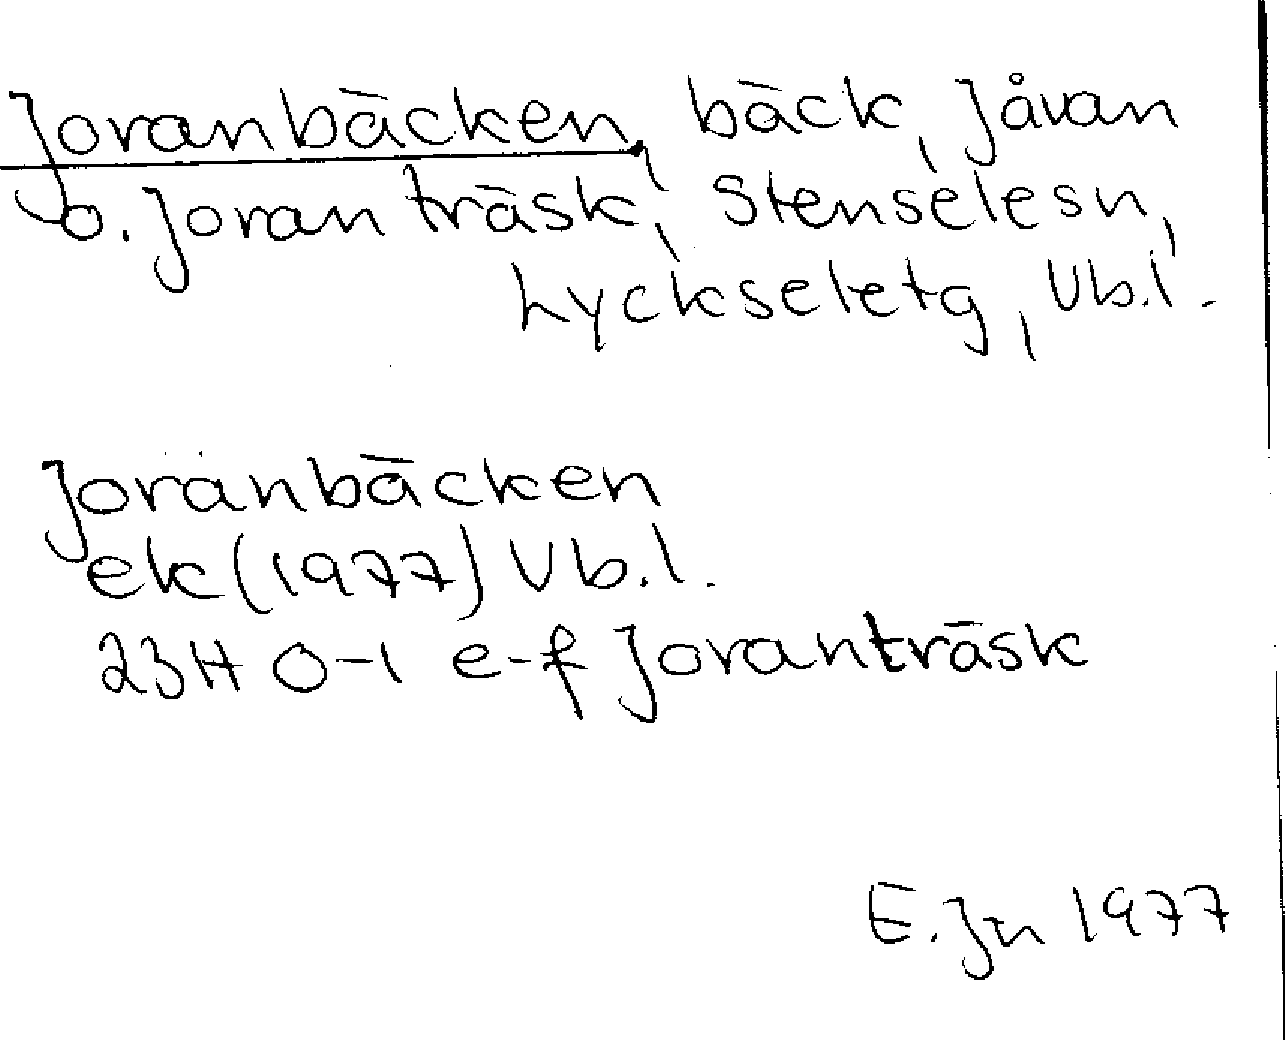 Joranbäcken, bäck, Jåvan
o. Joranträsk, Stenselesn,
Lyckseletg, Vb.l.
Joranbäcken
ek (1977) Vb.l.
23H 0-1 e-f Joranträsk
E. Jn 1977